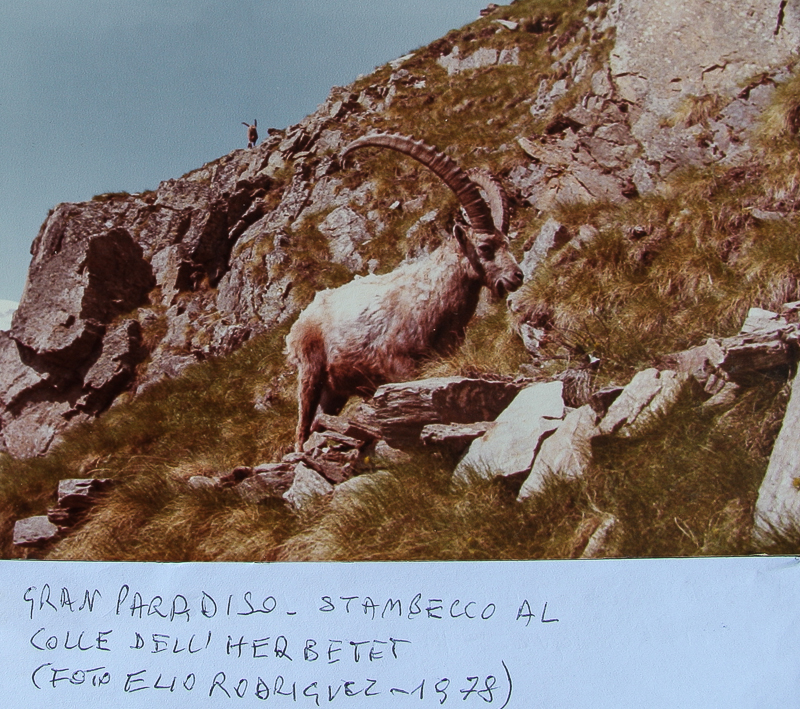 GRAN PARADISO - STAMBECCO AL
COLLE DELL'HERBETET
(FOTO ELIO RODRIGUEZ - 1978)